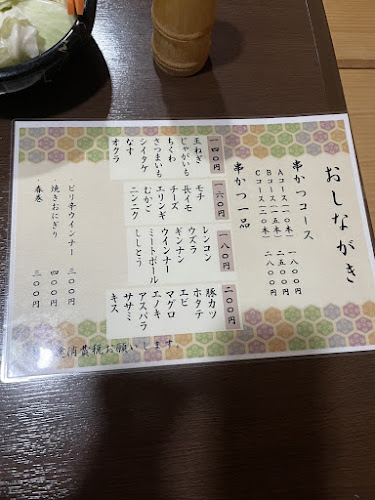 おしながき
串かつコース
Aコース(一〇本) 一八〇〇円
Bコース(一五本) 二五〇〇円
Cコース(二〇本) 二八〇〇円
串かつ一品
一四〇円
玉ねぎ
じゃがいも
ちくわ
さつまいも
シイタケ
なす
オクラ
一六〇円
モチ
長イモ
チーズ
エリンギ
むかご
ニンニク
一八〇円
レンコン
ウズラ
ギンナン
ウインナー
ミートボール
ししとう
二〇〇円
豚カツ
ホタテ
エビ
マグロ
エノキ
アスパラ
ササミ
キス
ピリ辛ウインナー 三〇〇円
焼きおにぎり 四〇〇円
春巻 三〇〇円
消費税お願いします。